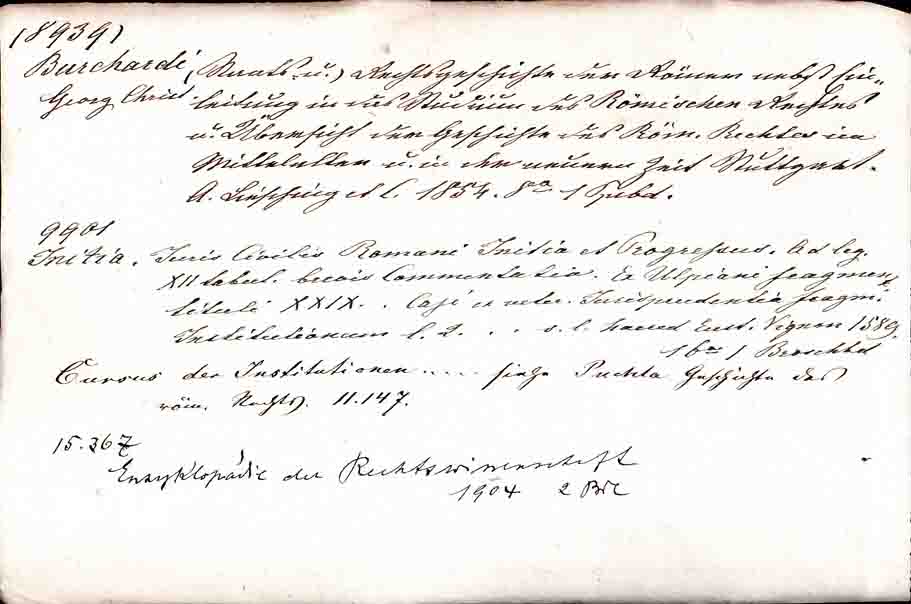 (8939)
Burchardi, (Staats- u.) Rechtsgeschichte der Römer nebst Ein-
Georg Christ. leitung in das Studium des Römischen Rechtes
u. Übersicht der Geschichte des Röm. Rechtes im
Mittelalter u. in der neuern Zeit Stuttgart.
A. Liesching et C. 1854. 8°
9901
Initia. Juris Civilis Romani Initia et Progressus. Ad leg.
XII tabul. brevis Commentatio. Ex Ulpiani fragmen.
tituli XXIX. . Caji et veter. Jurisprudentia fragm.
Institutionum l. 2. . . s. l. Eust. Vignon 1589.
1
Cursus der Institutionen ..... siehe Puchta Geschichte des
röm. Rechts. 11.147.
15.367
Enzyklopädie der Rechtswissenschaft
1904 2 Bde